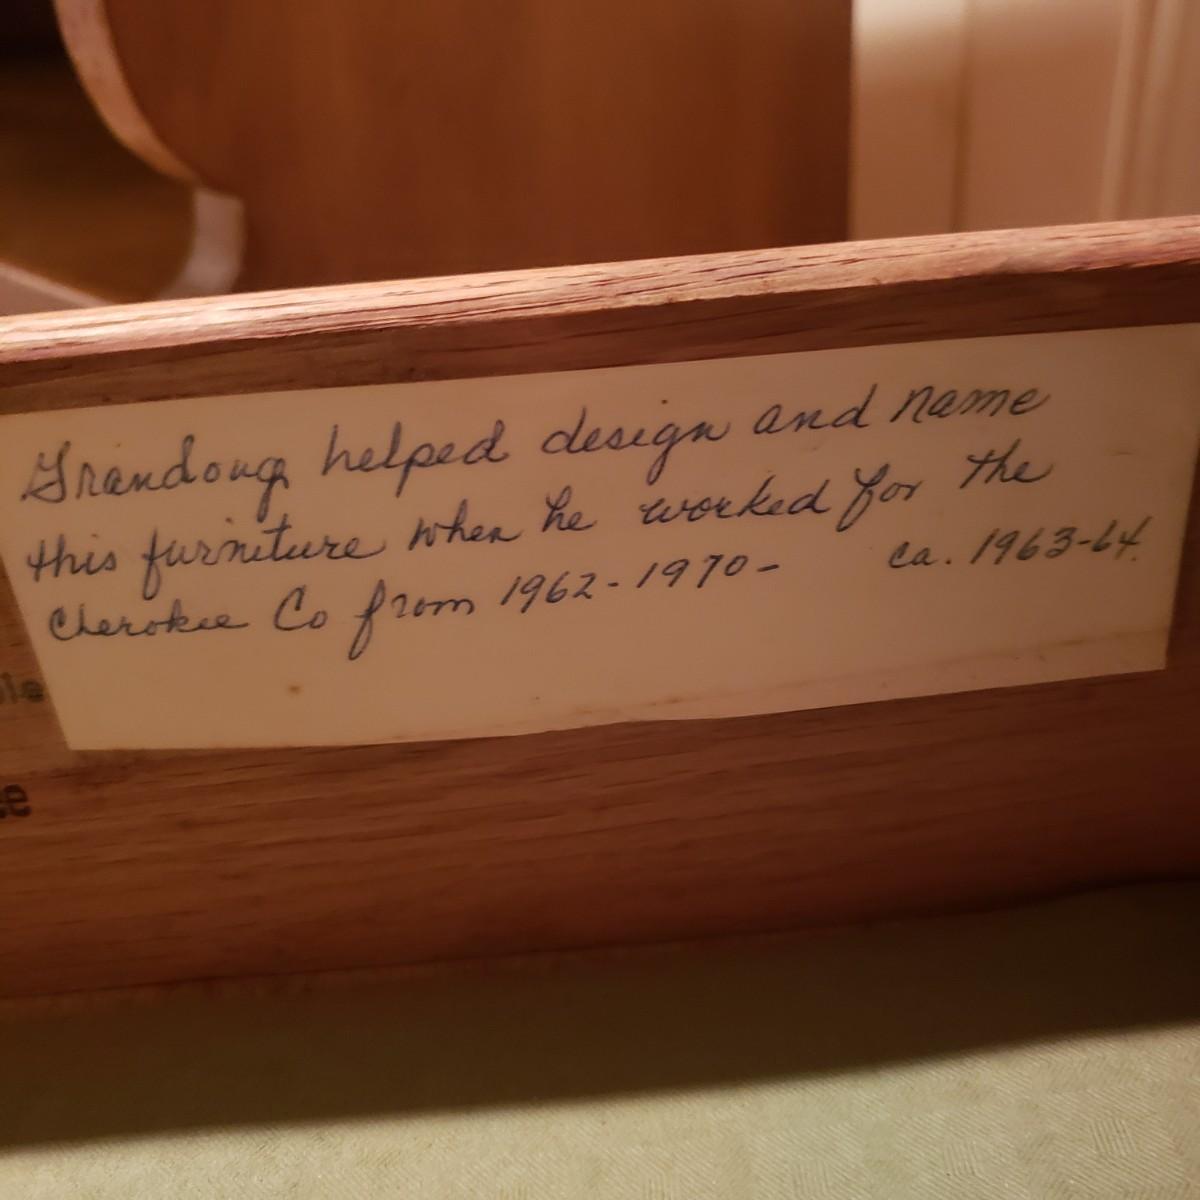 Grandoug helped design and name
this furniture when he worked for the
Cherokee Co from 1962-1970- ca. 1963-64.